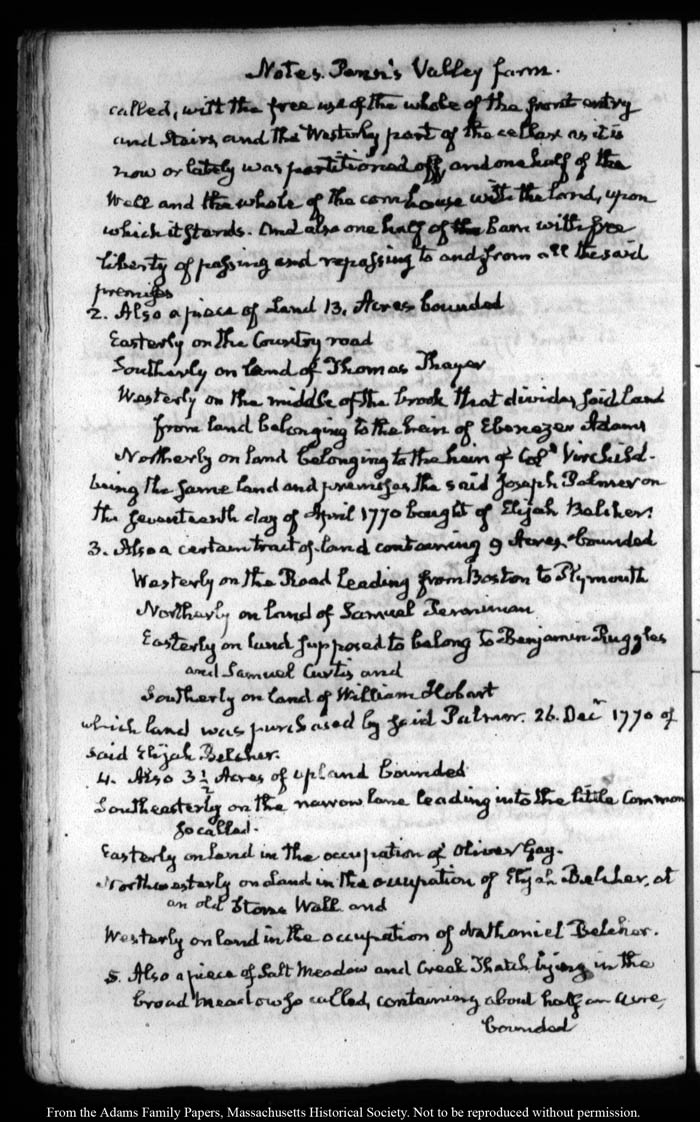 Notes. Penn's Valley farm.
called, with the free use of the whole of the front entry
and Stairs, and the Westerly part of the cellar as it is
now or lately was partitioned off, and one half of the
Well and the whole of the corn house with the land, upon
which it stands. And also one half of the Barn with free
liberty of passing and repassing to and from all the said
premises
2. Also a piece of Land 13. Acres bounded
Easterly on the Country road
Southerly on land of Thomas Thayer
Westerly on the middle of the brook that divides said land
from land belonging to the heirs of Ebenezer Adams
Northerly on land belonging to the heirs of Coll Virchild.
being the same land and premises the said Joseph Palmer on
the seventeenth day of April 1770 bought of Elijah Belcher.
3. Also a certain tract of land containing 9 Acres, bounded
Westerly on the Road leading from Boston to Plymouth
Northerly on land of Samuel
Easterly on land supposed to belong to Benjamin Ruggles
and Samuel Curtis and
Southerly on land of William Hobart
which land was purchased by said Palmer. 26. Decr 1770 of
said Elijah Belcher.
4. Also 3 1/2 Acres of upland bounded
Southeasterly on the narrow lane leading into the little Common
so called.
Easterly on land in the occupation of Oliver Gay.
Northwesterly on land in the occupation of Elijah Belcher, at
an old Stone Wall and
Westerly on land in the occupation of Nathaniel Belcher.
5. Also a piece of Salt Meadow and Creek Thatch lying in the
broad meadow so called, containing about half an acre,
bounded
From the Adams Family Papers, Massachusetts Historical Society. Not to be reproduced without permission.